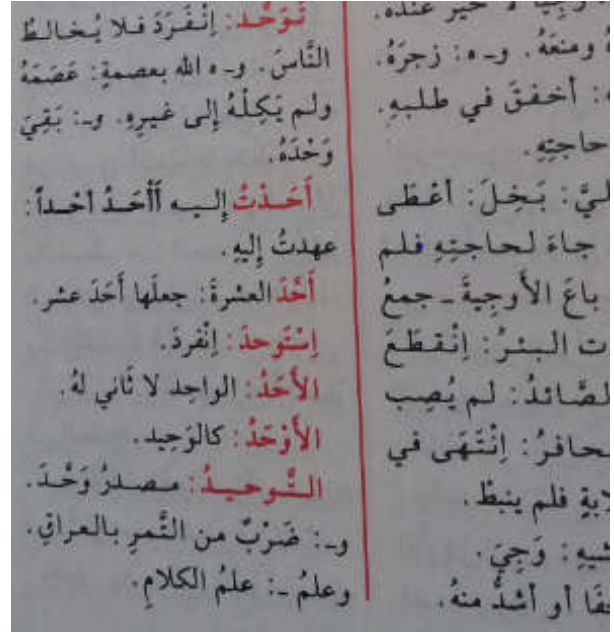 وجيا لا خير عنده.
ومنعَهُ. و-ه: زجرَهُ.
: أخفقَ في طلبهِ.
حاجتِهِ.
بَخِلَ: أعْطَى
جاءَ لحاجتِهِ فلم
باعَ الأَوجيةَ - جمعُ
البئرُ: اِنْقطَعَ
لم يُصِب
اِنْتَهَى في
فلم ينبطْ.
: وَجِيَ.
أو أشدُّ منهُ.
تَوَحَّدَ: اِنْفَرَدَ فلا يُخالطُ
النَّاسَ. و-ه الله بعصمةٍ: عَصَمَهُ
ولم يَكِلْهُ إلى غيرِهِ. و-: بَقِيَ
وَحْدَهُ.
أَحَدْتُ إليه أَأْحَدُ أحْداً:
عهدتُ إليهِ.
أَحَّدَ العشرةَ: جعلَها أَحَدَ عشر.
اِسْتَوحدَ: اِنْفردَ.
الأَحَدُ: الواحِد لا ثَاني لهُ.
الأَوْحَدُ: كالوَحِيد.
التَّوحيدُ: مصدرُ وَحَّدَ.
و-: ضَرْبٌ من التَّمرِ بالعراقِ.
وعلمُ -: علمُ الكلامِ.